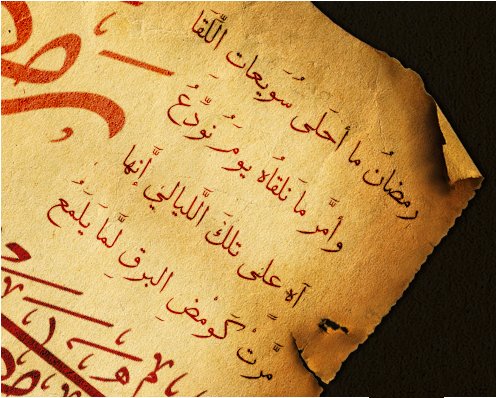 رمضانُ ما أَحلَى سُوَيعاتِ اللِّقَا
وأمَرَّ ما نلقاه يومَ نُودِّعُ
آه على تلكَ الليالي إنَّها
مرَّتْ كَوَمْضِ البرقِ لمَّا يَلمَعُ